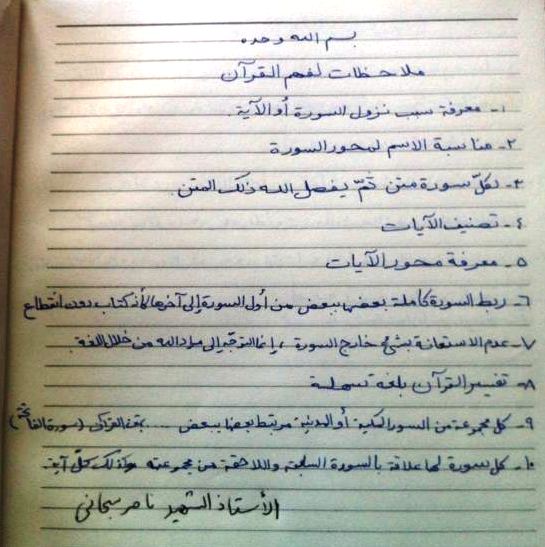 بسم الله وحده
ملاحظات لفهم القرآن
١- معرفة سبب نزول السورة أو الآية.
٢- مناسبة الاسم لمحور السورة
٣- لكلّ سورة متن ثمّ يفصل الله ذلك المتن.
٤- تصنيف الآيات
٥- معرفة محور الآيات
٦- ربط السورة كاملة بعضها ببعض من أول السورة إلى آخرها كأنه كتاب بدون انقطاع
٧- عدم الاستعانة بشيء خارج السورة، إنما التوجّه إلى مراد الله من خلال اللغة.
٨- تفسير القرآن بلغة سهلة
٩- كل مجموعة من السور المكية أو المدنية مرتبط بعضها ببعض ..... (سورة الفاتحة)
١٠- كل سورة لها علاقة بالسورة السابقة واللاحقة من مجموعته وكذلك كلّ آية.
الأستاذ الشهيد ناصر سبحاني